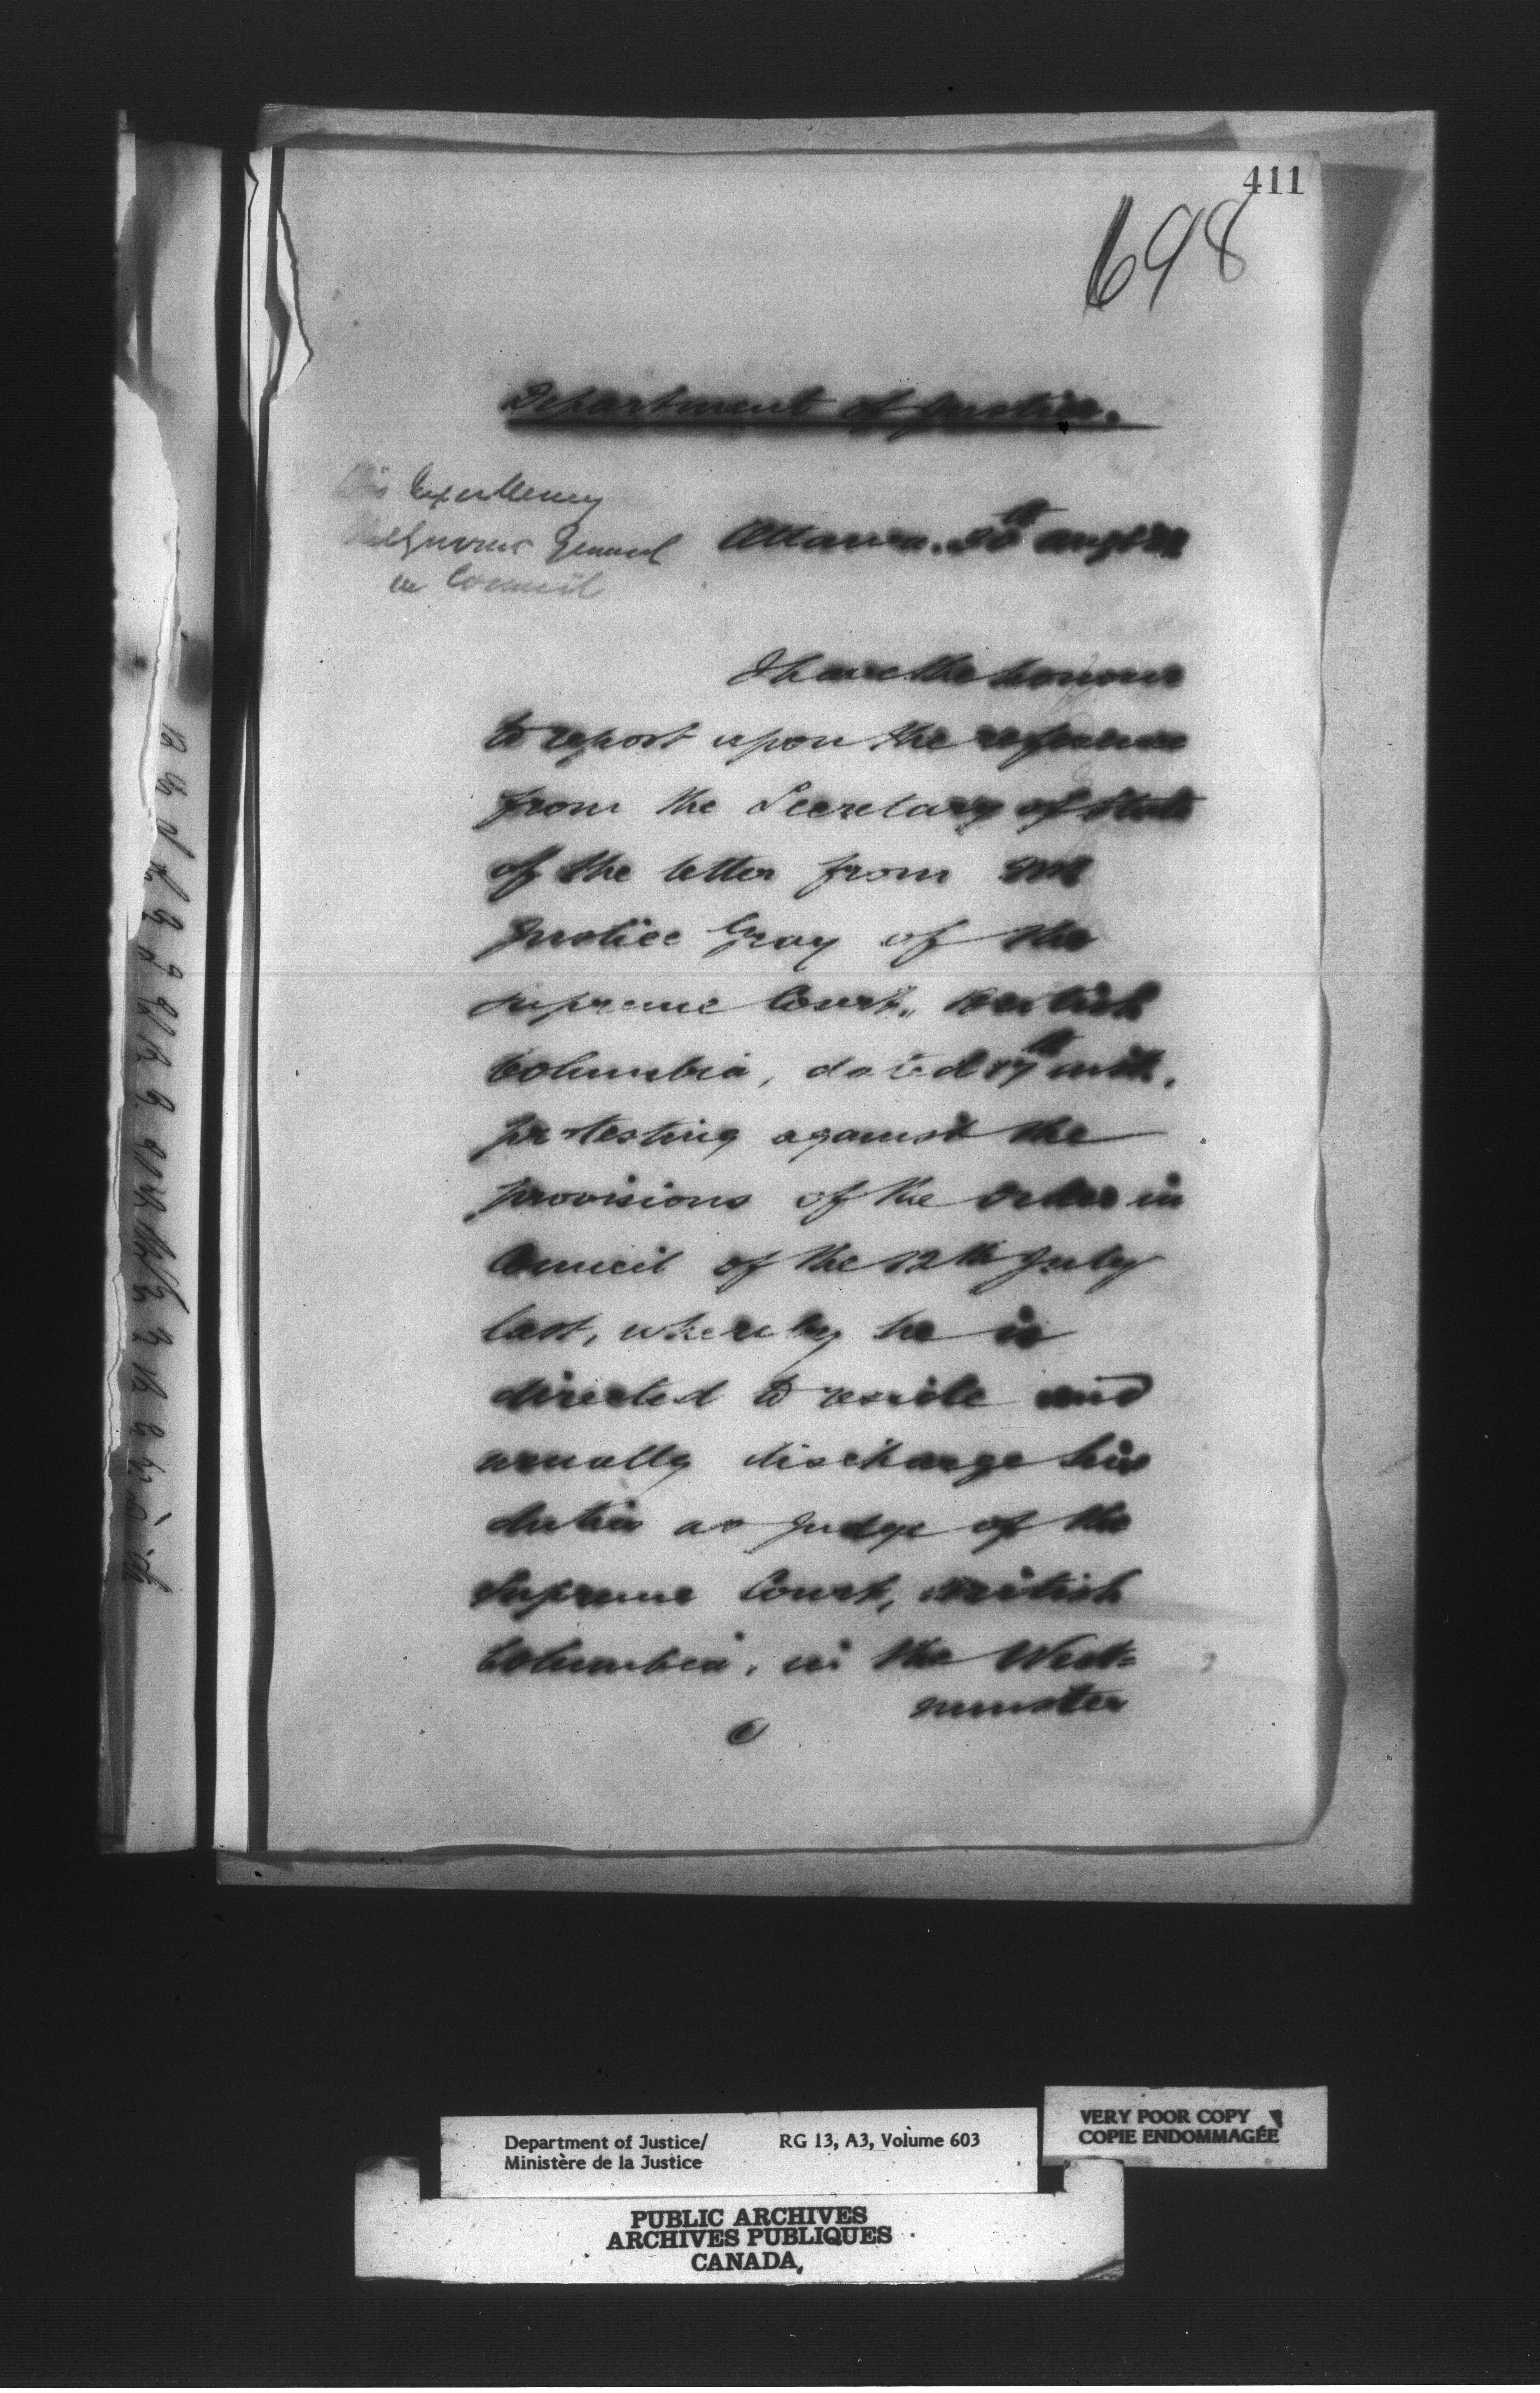 411
698
Department of Justice.
His Excellency
The Governor General
in Council
Ottawa. 30th Augt
I have the honour
to report upon the reference
from the Secretary of State
of the letter from Mr
Justice Gray of the
Supreme Court, British
Columbia, dated 17th ult.
protesting against the
provisions of the Order in
Council of the 12th July
last, whereby he is
directed to reside and
usually discharge his
duties as Judge of the
Supreme Court, British
Columbia, in the West=
minster
Department of Justice/
Ministère de la Justice
RG 13, A3, Volume 603
VERY POOR COPY
COPIE ENDOMMAGÉE
PUBLIC ARCHIVES
ARCHIVES PUBLIQUES
CANADA